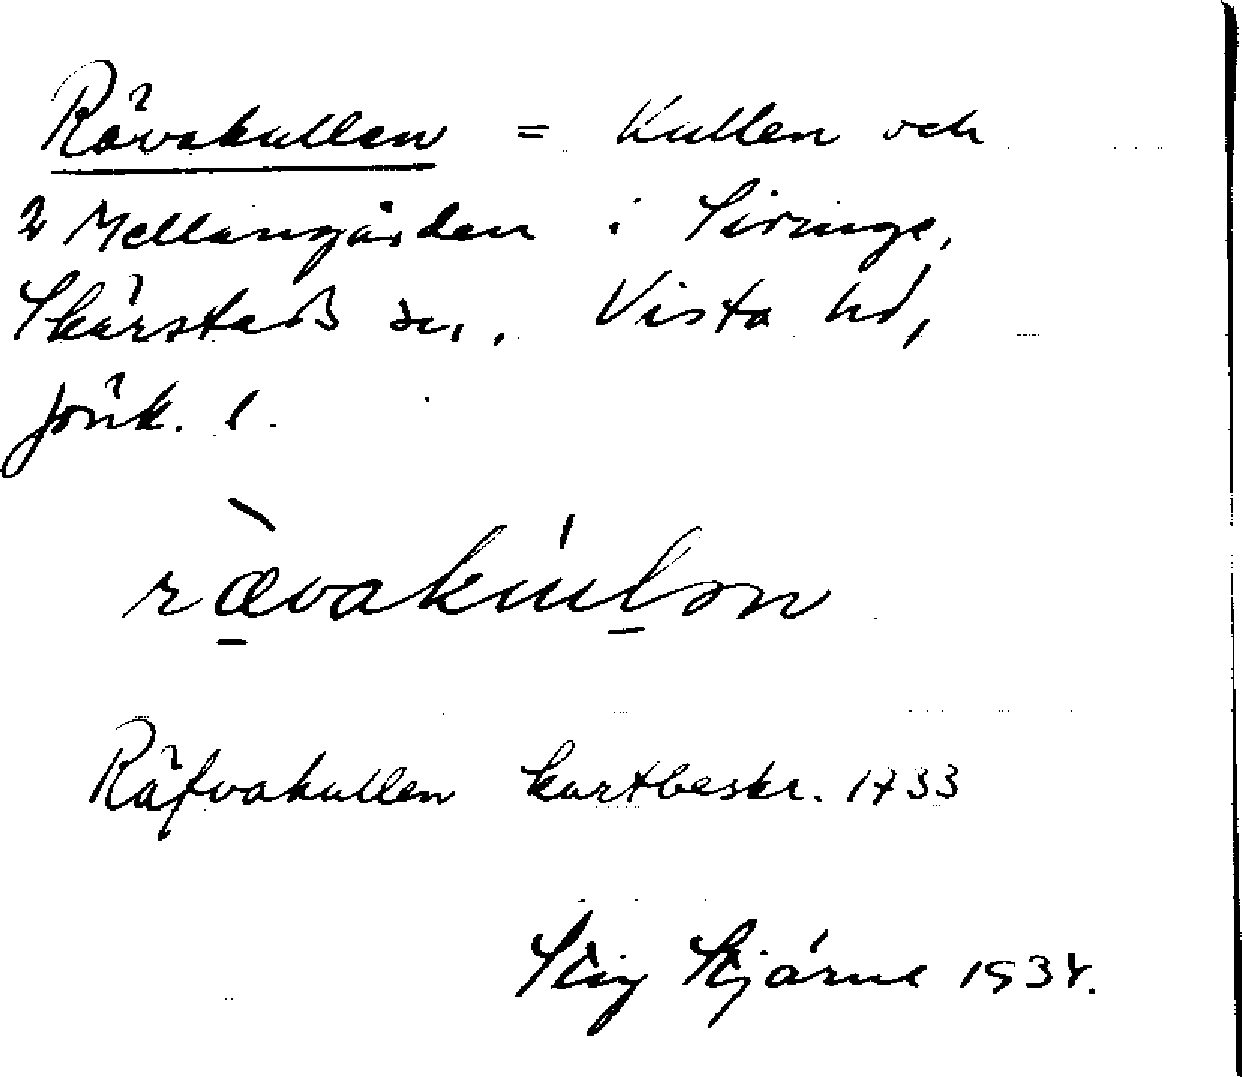 Rävakullen = Kullen och
2 Mellangården i Siringe,
Skärstads sn, Vista hd,
Jönk. l.
rævakulən
Räfvakullen kartbeskr. 1733
Stig Stjärne 1934.